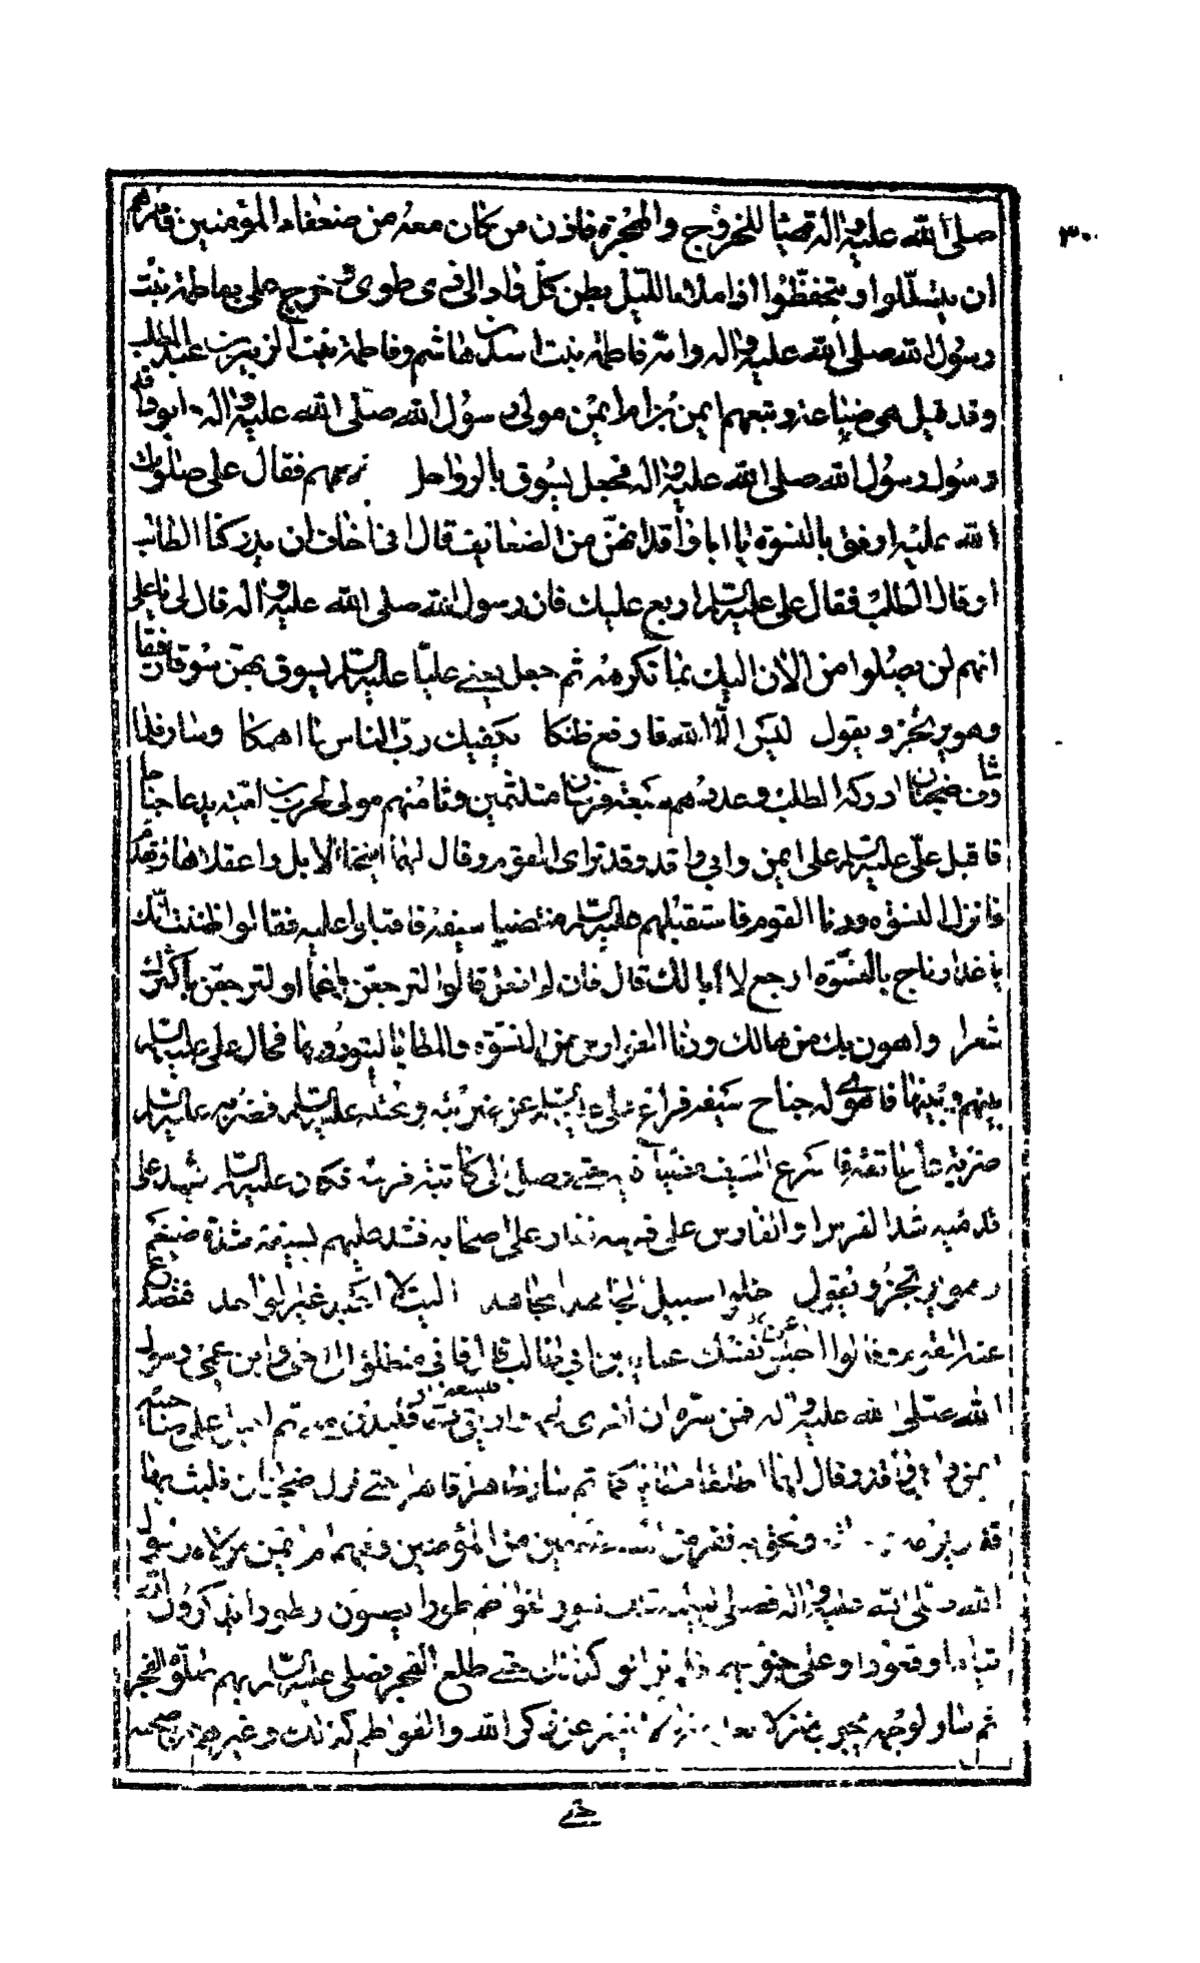 ٣٠
صلى الله عليه واله تهيأ للخروج والهجرة فاذن من كان معه من ضعفاء المؤمنين فامرهم
ان يتسللوا ويتخفظوا اذا ملاء الليل بطن كل واد الى ذى طوى وخرج على بفاطمة بنت
رسول الله صلى الله عليه واله وامه فاطمة بنت اسد بن هاشم وفاطمة بنت الزبير بن عبد المطلب
وقد قيل هى ضباعة وتبعهم ايمن بن ام ايمن مولى رسول الله صلى الله عليه واله وابو واقد
رسول رسول الله صلى الله عليه واله فجعل يسوق بالرواحل فقال على صلوات
الله عليه ارفق بالنسوة يا ابا واقد انهن من الضعائف قال انى اخاف ان يدركنا الطالب
او قال الطلب فقال على عليه السلام اربع عليك فان رسول الله صلى الله عليه واله قال لى يا على
انهم لن يصلوا من الان اليك بما تكرهه ثم جعل يعنى عليا عليه السلام يسوق بهن سوقا رفيقا
وهو يرتجز ويقول ليس الا الله فارفع ظنكا يكفيك رب الناس ما اهمكا وسار فلما
شارف ضجنان ادركه الطلب وعددهم سبعة فرسان متلثمين وثامنهم مولى لحرب بن امية يدعا جناحا
فاقبل على عليه السلام على ايمن وابى واقد وقد تراى القوم وقال لهما انيخا الابل واعقلاها وتقدم
فانزل النسوة ودنا القوم فاستقبلهم عليه السلام منتضيا سيفه فاقبلوا عليه فقالوا ظننت انك
يا غدار ناج بالنسوة ارجع لا ابا لك قال فان لم افعل قالوا لترجعن راغما او لترجعن باكثرك
شعرا واهون بك من هالك ودنا الفوارس من النسوة والمطايا ليثوروها فحال على عليه السلام
بينهم وبينها فاهوى له جناح بسيفه فراغ على عليه السلام عن ضربته وتختله عليه السلام فضربه عليه السلام
ضربة على عاتقه فاسرع السيف مضيا فيه حتى وصل الى كاثبة فرسه فكان عليه السلام يشد على
قدميه شد الفرس او الفارس على فرسه فشد عليهم بسيفه شدة ضيغم
وهو يرتجز ويقول خلوا سبيل الجاهد المجاهد اليت لا اعبد غير الواحد فتصدع
عنه القوم وقالوا احبس نفسك عنا يا بن ابى طالب قال فانى منطلق الى اخى وابن عمى رسول
الله صلى الله عليه واله فمن سره ان افرى لحمه واريق دمه فليدن منى ثم اقبل على صاحبيه
ايمن وابى واقد وقال لهما اطلقا مطاياكما ثم سار ظاهرا قاهرا حتى نزل ضجنان فلبث بها
قدر يومه ولحق به نفر من المستضعفين من المؤمنين وفيهم ام ايمن مولاة رسول
الله صلى الله عليه واله فصلى ليلته تلك هو والفواطم طورا يصلون وطورا يذكرون الله
قياما وقعودا وعلى جنوبهم فلم يزالو كذلك حتى طلع الفجر فصلى عليه السلام بهم صلوة الفجر
ثم سار لوجهه يجوب منزلا بعد منزل لا يفتر عن ذكر الله والفواطم كذلك وغيرهم ممن صحبه
حتى